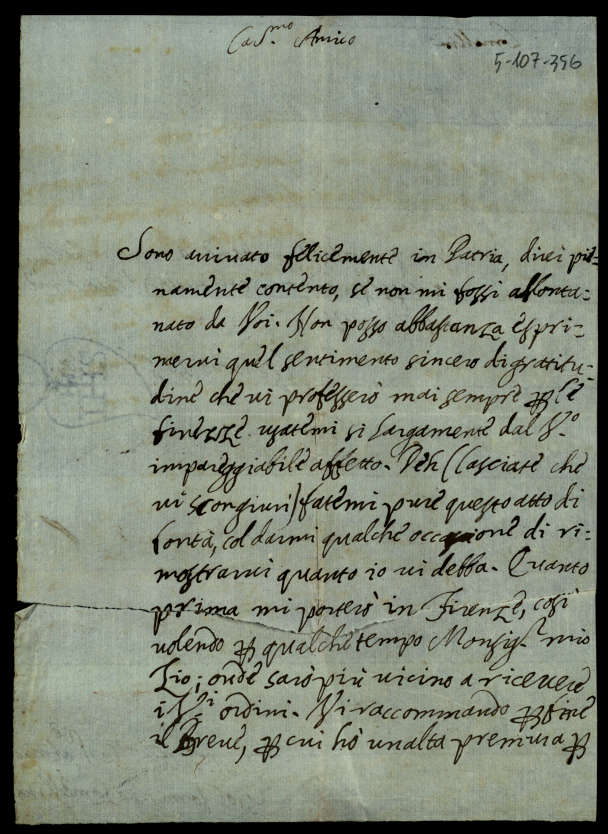 Car.mo Amico
5-107-356
Sono arrivato felicemente in Patria, direi pie-
namente contento, se non mi fossi allonta-
nato da Voi. Non posso abbastanza espri-
mervi quel sentimento sincero di grattitu-
dine che vi professerò mai sempre ꝑ le
finezze usatemi si largamente dal V.o
impareggiabile affetto. Deh (lasciate che
vi scongiuri) fatemi pure questo atto di
bontà, col darmi qualche occasione di ri-
mostrarvi quanto io vi debba. Quanto
prima mi porterò in Firenze, così
volendo ꝑ qualche tempo Monsig.r mio
Zio; onde sarò più vicino a ricevere
i V.i ordini. Vi raccommando ꝑ fine
il Breve, ꝑ cui hò unalta premura ꝑ